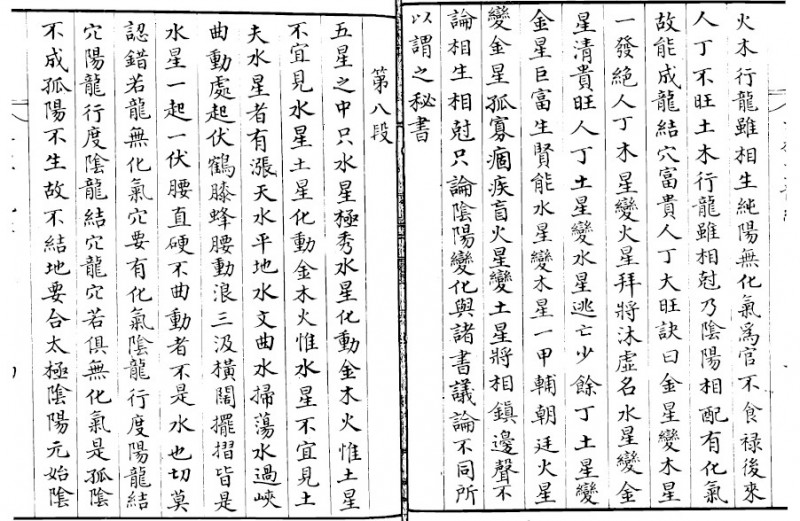 火木行龍雖相生純陽無化氣爲官不食禄後來
人丁不旺土木行龍雖相尅乃陰陽相配有化氣
故能成龍結穴富貴人丁大旺訣曰金星變木星
一發絶人丁木星變火星拜將沐虛名水星變金
星清貴旺人丁土星變水星逃亡少餘丁土星變
金星巨富生賢能水星變木星一甲輔朝廷火星
變金星孤寡痼疾盲火星變土星將相鎮邊聲不
論相生相尅只論陰陽變化與諸書議論不同所
以謂之秘書
第八段
五星之中只水星極秀水星化動金木火惟土星
不宜見水星土星化動金木火惟水星不宜見土
夫水星者有漲天水平地水文曲水掃蕩水過峽
曲動處起伏鶴膝蜂腰動浪三汲橫闊擺摺皆是
水星一起一伏腰直硬不曲動者不是水也切莫
認錯若龍無化氣穴要有化氣陰龍行度陽龍結
穴陽龍行度陰龍結穴龍穴若俱無化氣是孤陰
不成孤陽不生故不結地要合太極陰陽元始陰